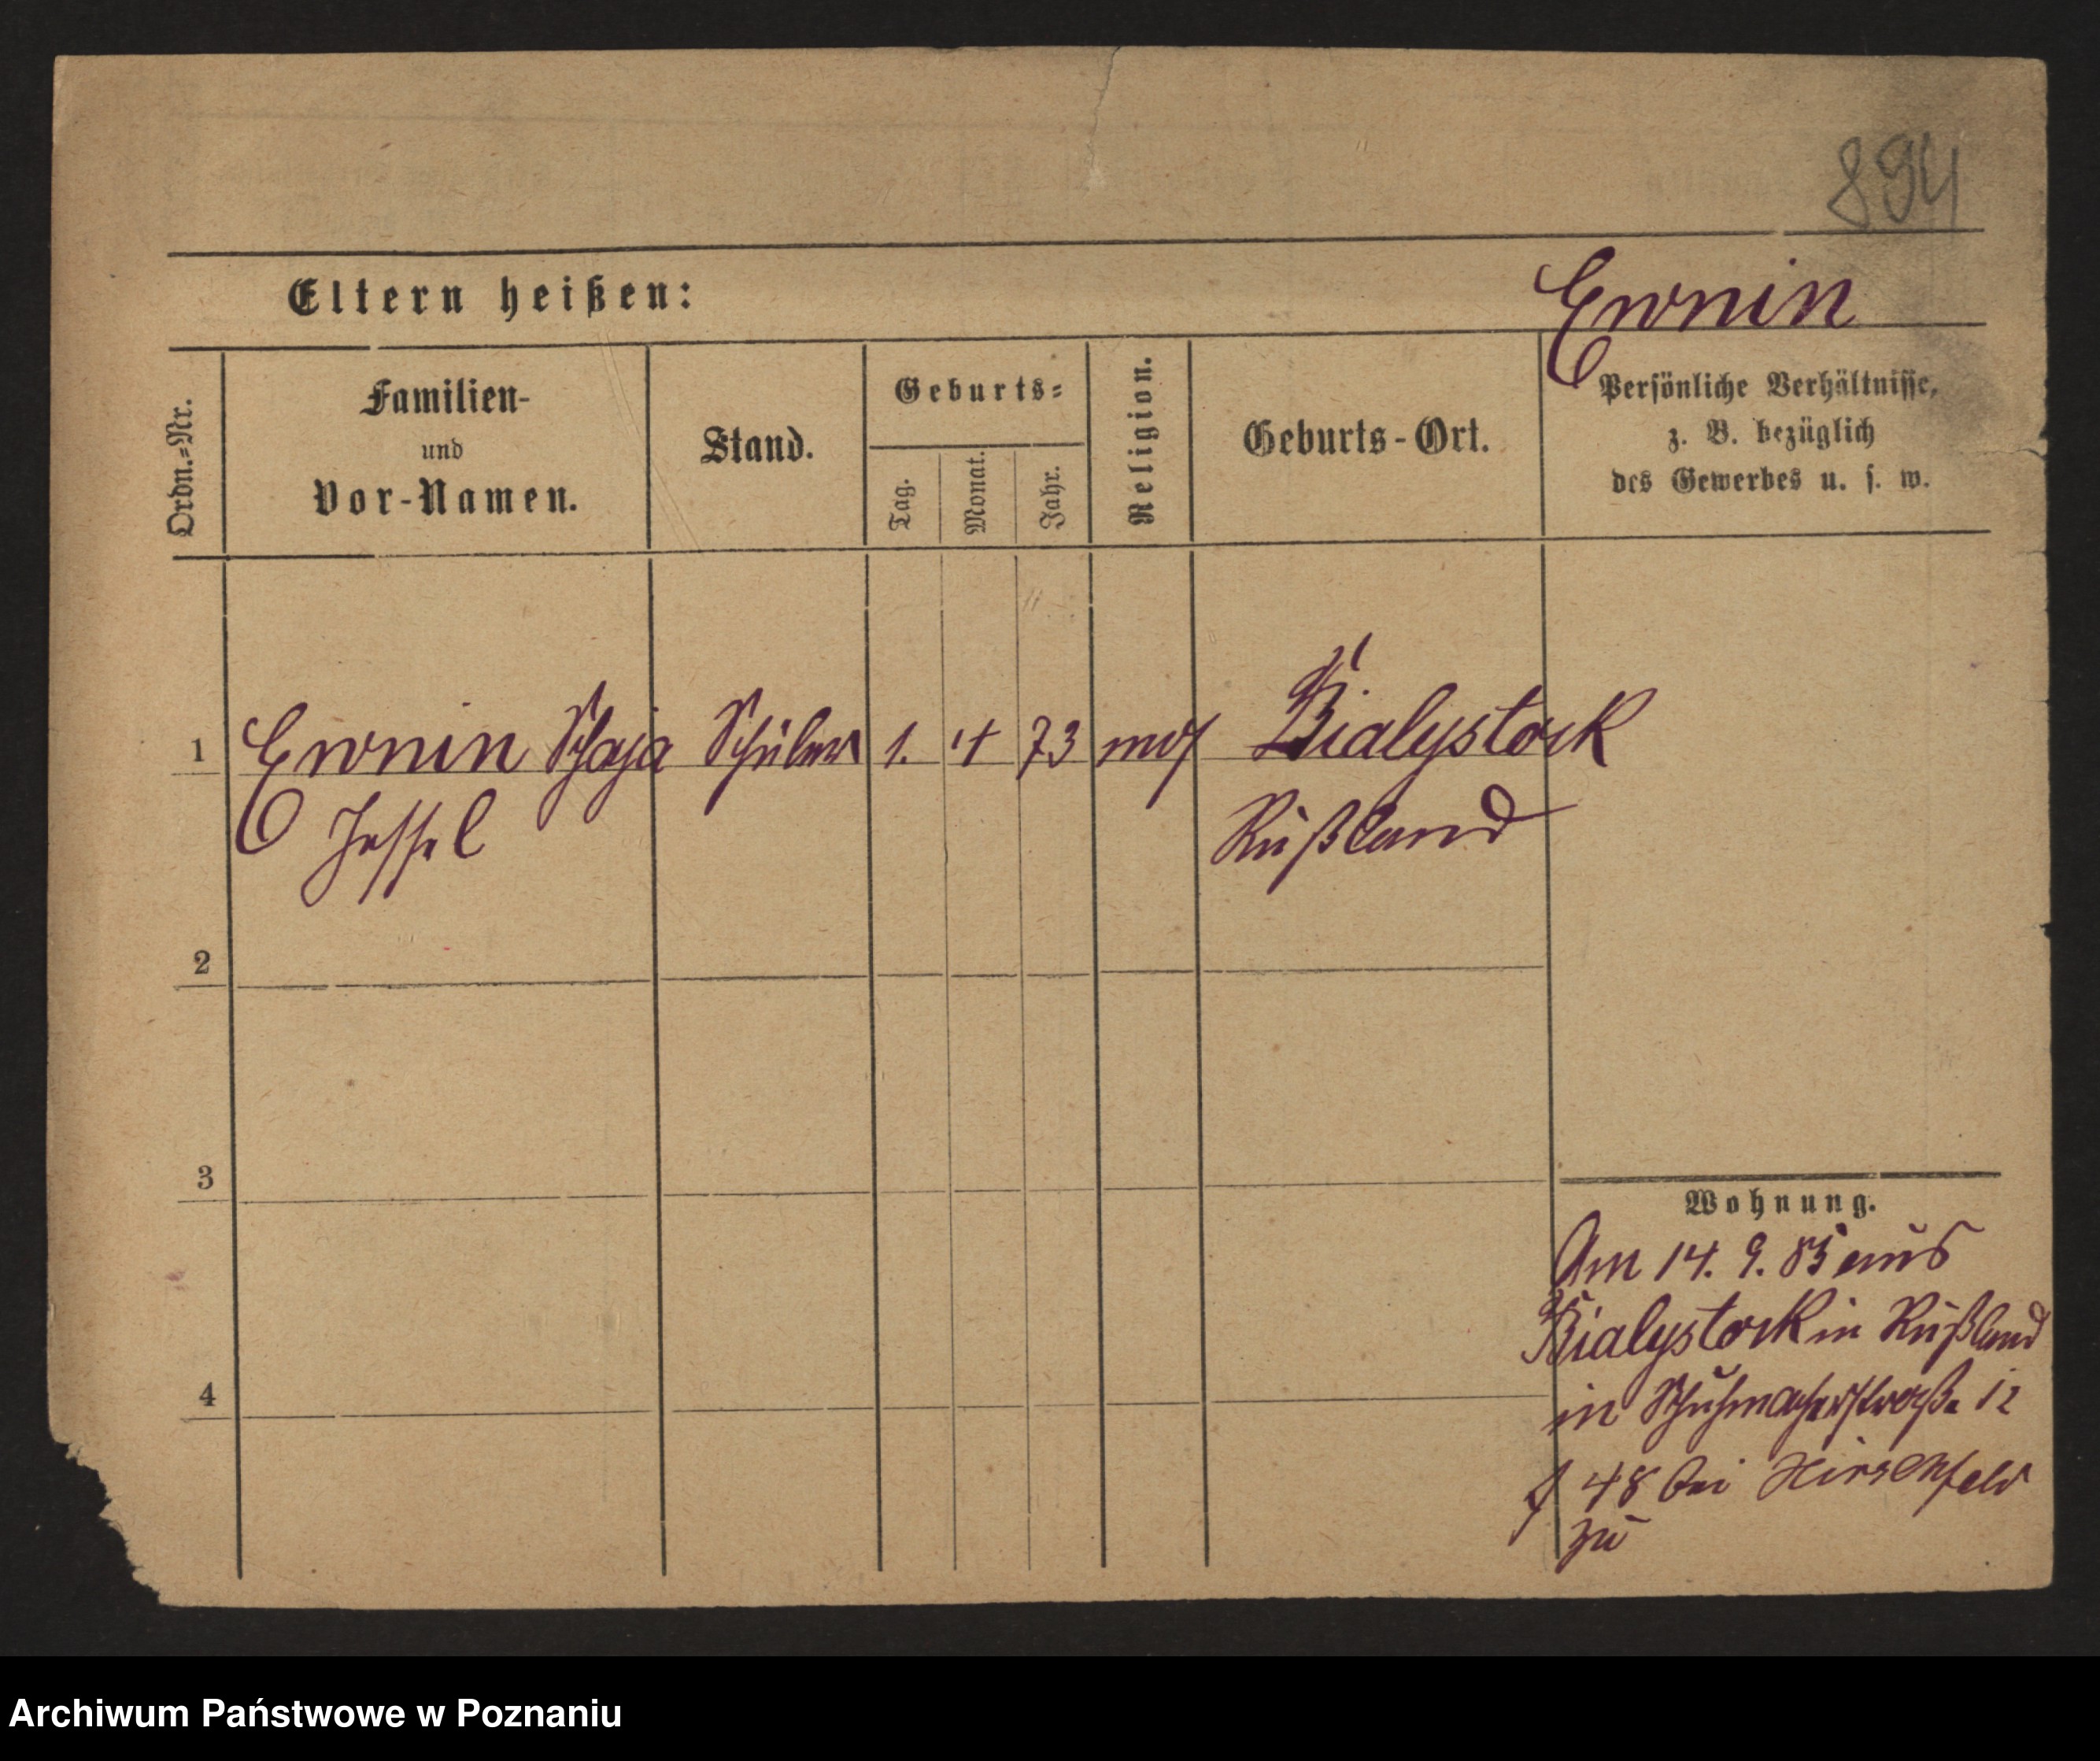 894
Eltern heißen:
Ewnin
Ordn.-Nr.
Familien-
und
Vor-Namen.
Stand.
Geburts-
Tag.
Monat.
Jahr.
Religion.
Geburts-Ort.
Persönliche Verhältnisse,
z. B. bezüglich
des Gewerbes u. s. w.
1 Ewnin Schaja Schüler 1. 4 73 mos Bialystock
Jossel Rußland
2
3
4
Wohnung.
Am 14. 9. 85 aus
Bialystock in Rußland
in Schuhmacherstraße 12
48 bei Hirschfeld
zu
Archiwum Państwowe w Poznaniu